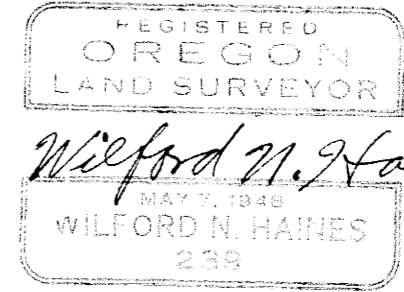 REGISTERED
OREGON
LAND SURVEYOR
Wilford N. Ha
MAY 7, 1948
WILFORD N. HAINES
239